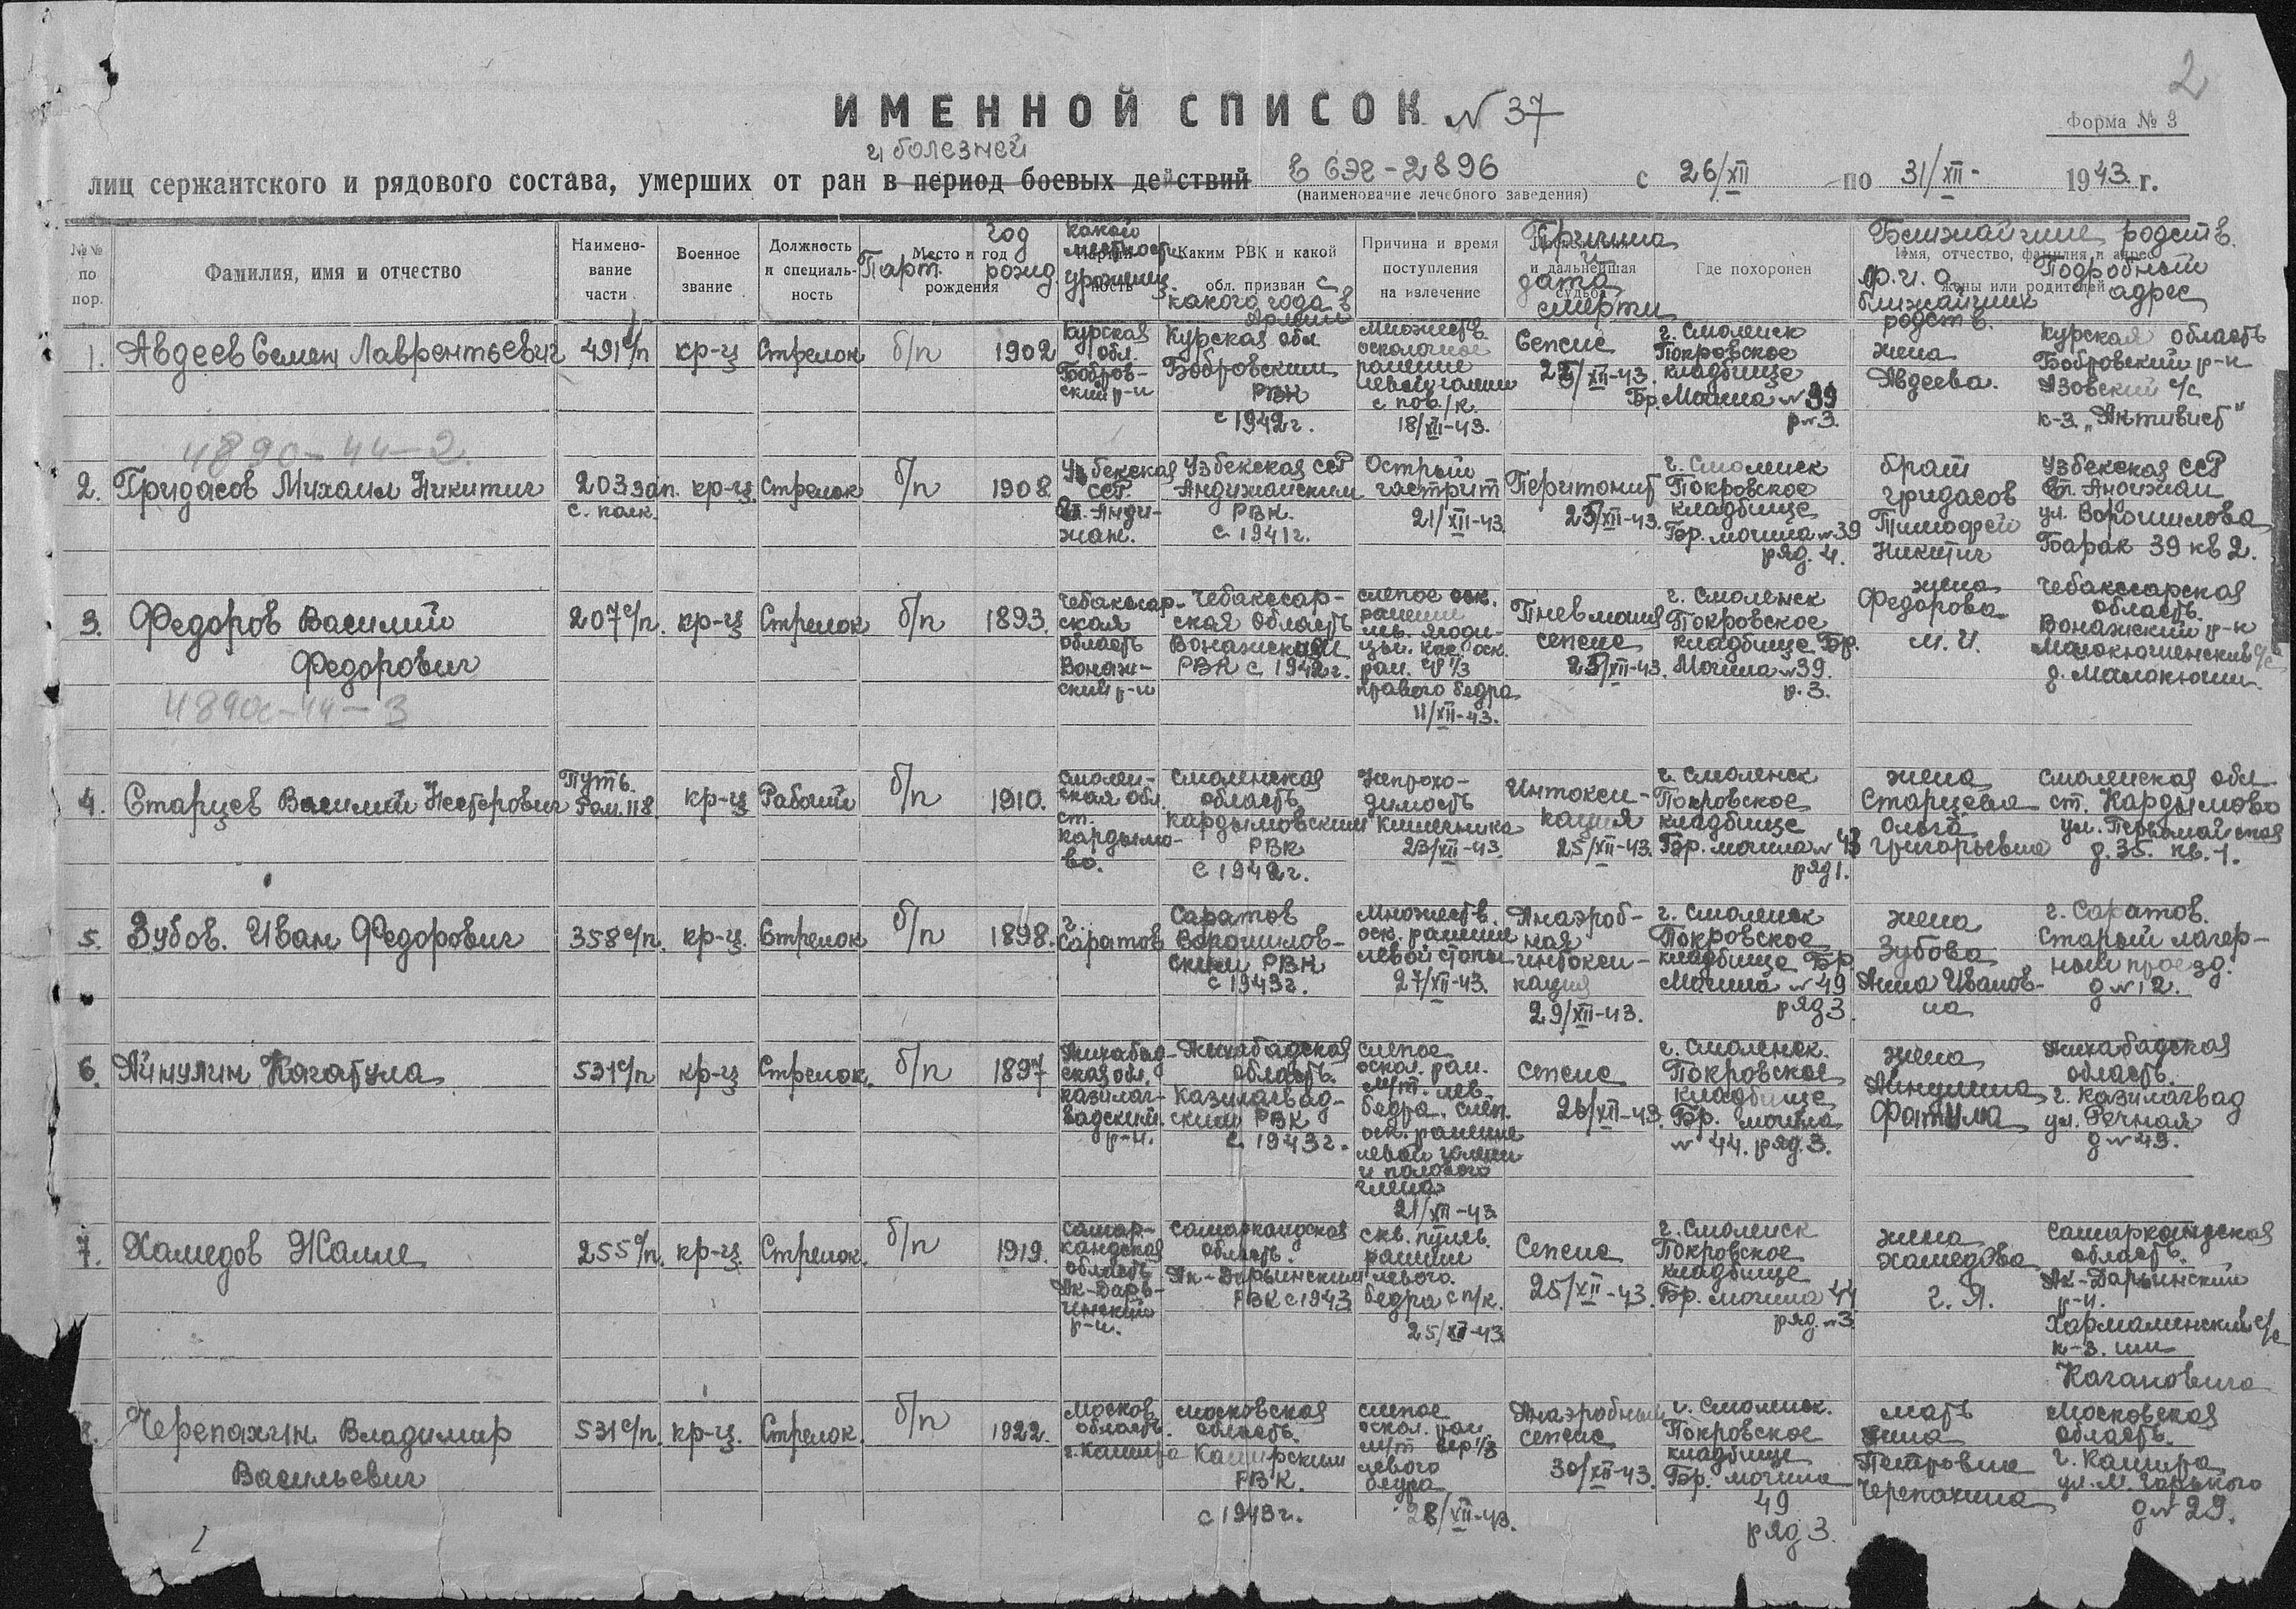 2
ИМЕННОЙ СПИСОК № 37
Форма № 3
и болезней
лиц сержантского и рядового состава, умерших от ран в период боевых действий в СЭГ-2896 с 26/XII по 31/XII- 1943 г.
(наименование лечебного заведения)
№№ по пор.
Фамилия, имя и отчество
Наимено-
вание
части
Военное
звание
Должность
и специаль-
ность
Парт.
Место и год
рождения
год
рожд.
какой
местности
урожен.
Каким РВК и какой
обл. призван с
какого года в
армии
Причина и время
поступления
на излечение
Причина
и
дата
смерти
и дальнейшая
судьба
Где похоронен
Ближайшие родств.
Имя, отчество, фамилия и адрес
жены или родителей
ф. и. о.
ближайших
родств.
Подробный
адрес
1.
Авдеев Семен Лаврентьевич
491 с/п
кр-ц
Стрелок
б/п
1902
Курская
обл.
Бобров-
ский р-н
Курская обл.
Бобровским
РВК
с 1942 г.
множеств.
осколочное
ранение
левой голени
с пов./к.
18/XII-43.
Сепсис
/XII-43.
г. Смоленск
Покровское
кладбище
Бр. Могила № 39
р № 3.
жена
Авдеева.
Курская область
Бобровский р-н
Азовский с/с
к-з. „Активист"
4890-44-2.
2.
Гридасов Михаил Никитич
203 зап.
с. полк.
кр-ц
Стрелок
б/п
1908
Узбекская
ССР.
ст. Анди-
жан.
Узбекская ССР
Андижанским
РВК.
с 1941 г.
Острый
гастрит
21/XII-43.
Перитонит
25/XII-43.
г. Смоленск
Покровское
кладбище
Бр. могила № 39
ряд. 4.
брат
Гридасов
Тимофей
Никитич
Узбекская ССР
ст. Андижан
ул. Ворошилова
Барак 39 кв 2.
3.
Федоров Василий
Федорович
207 с/п.
кр-ц
Стрелок
б/п
1893.
Чебаксар-
ская
область
Вонаж-
ский р-н
Чебаксар-
ская область
Вонажский
РВК с 1942 г.
слепое оск.
ранение
лев. ягоди-
цы. кас. оск.
ран. 1/3
правого бедра
11/XII-43.
Пневмония
сепсис
25/XII-43.
г. Смоленск
Покровское
кладбище Бр.
Могила № 39.
р. 3.
жена
Федорова
М. И.
Чебаксарская
область.
Вонажский р-н
Малокюшенский с/с
д. Малокюши.
4890-44-3
4.
Старцев Василий Нестерович
Путь.
Рем. 118
кр-ц
Рабочий
б/п
1910.
Смолен-
ская обл.
ст.
Кардымо-
во.
Смоленская
область
Кардымовским
РВК
с 1942 г.
Непрохо-
димость
кишечника
23/XII-43.
Интокси-
кация
25/XII-43.
г. Смоленск
Покровское
кладбище
Бр. могила № 43
ряд 1.
жена
Старцева
Ольга
Григорьевна
Смоленская обл
ст. Кардымово
ул. Первомайская
д. 35. кв. 1.
5.
Зубов. Иван Федорович
358 с/п.
кр-ц.
Стрелок
б/п
1898.
г.
Саратов
Саратов
Ворошилов-
ским РВК
с 1943 г.
Множеств.
оск. ранение
левой стопы
27/XII-43.
Анаэроб-
ная
интокси-
кация
29/XII-43.
г. Смоленск
Покровское
кладбище Бр
Могила № 49
ряд 3
жена
Зубова
Анна Иванов-
на
г. Саратов.
Старый лагер-
ный проезд.
д № 12.
6.
Айнулин Кагатула
531 с/п
кр-ц
Стрелок.
б/п
1897
область.
РВК
с 1943 г.
слепое
оскол. ран.
м/т. лев.
бедра. слеп.
оск. ранение
левой голени
и полового
члена
21/XII-43
сепсис
26/XII-43.
г. Смоленск.
Покровское
кладбище
Бр. могила
№ 44. ряд. 3.
жена
Айнулина
Фатима
область.
г. Казилагвад
ул. Речная
д № 49.
7.
Хамедов Жалие
255 с/п.
кр-ц.
Стрелок.
б/п
1919.
Самар-
кандская
область
Ак-Дарь-
инский
р-н.
Самаркандская
область.
Ак-Дарьинским
РВК с 1943
скв. пулев.
ранение
левого.
бедра с п/к.
25/XII-43
Сепсис
25/XII-43.
г. Смоленск
Покровское
кладбище
Бр. могила 44
ряд. № 3
жена
Хамедова
Г. Я.
Самаркандская
область.
Ак-Дарьинский
р-н.
Хармаминский с/с
к-з. им
Кагановича
8.
Черепахин Владимир
Васильевич
531 с/п.
кр-ц.
Стрелок.
б/п
1922.
Москов.
область.
г. Кашира
Московская
область.
Каширским
РВК.
с 1943 г.
слепое
оскол. ран.
м/т вер. 1/3
левого
бедра
28/XII-43.
Анаэробный
сепсис
30/XII-43.
г. Смоленск.
Покровское
кладбище
Бр. могила
49
ряд 3.
мать
Анна
Петровна
Черепахина
Московская
область.
г. Кашира
ул. М. Горького
д № 29.